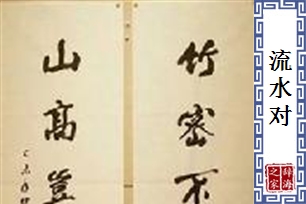 竹密不
山高豈
流水对
辞海之家